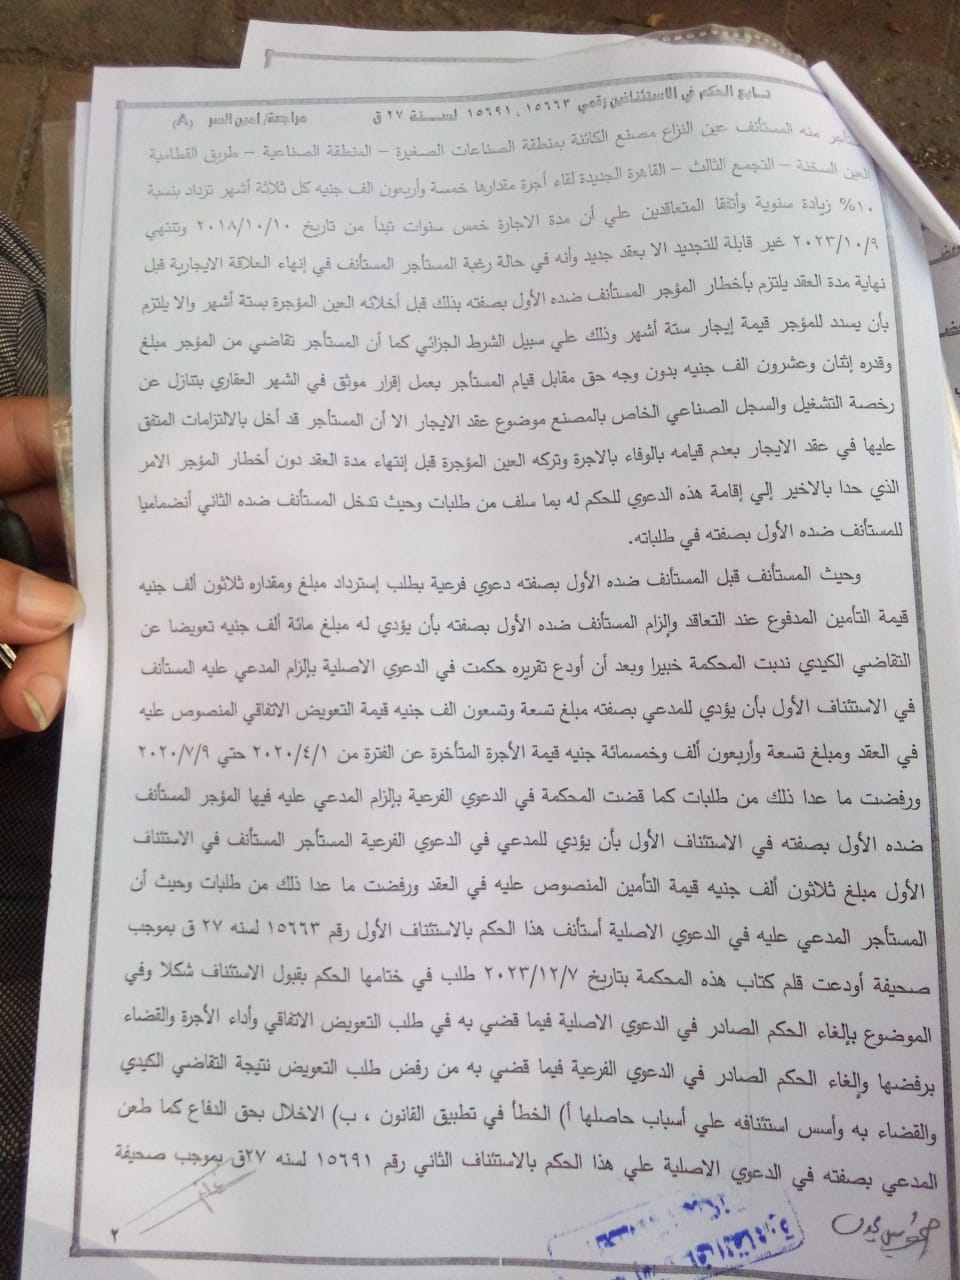 تابع الحكم في الاستئنافين رقمي ١٥٦٦٣ ، ١٥٦٩١ لسنة ٢٧ ق مراجعة/ امين السر (A)
منه المستأنف عين النزاع مصنع الكائنة بمنطقة الصناعات الصغيرة – المنطقة الصناعية – طريق القطامية
العين السخنة – التجمع الثالث – القاهرة الجديدة لقاء أجرة مقدارها خمسة وأربعون الف جنيه كل ثلاثة أشهر تزداد بنسبة
١٠% زيادة سنوية وأتفقا المتعاقدين علي أن مدة الاجارة خمس سنوات تبدأ من تاريخ ٢٠١٨/١٠/١٠ وتنتهي
٢٠٢٣/١٠/٩ غير قابلة للتجديد الا بعقد جديد وأنه في حالة رغبة المستأجر المستأنف في إنهاء العلاقة الايجارية قبل
نهاية مدة العقد يلتزم بأخطار المؤجر المستأنف ضده الأول بصفته بذلك قبل أخلائه العين المؤجرة بستة أشهر والا يلتزم
بأن يسدد للمؤجر قيمة إيجار ستة أشهر وذلك علي سبيل الشرط الجزائي كما أن المستأجر تقاضي من المؤجر مبلغ
وقدره إثنتان وعشرون الف جنيه بدون وجه حق مقابل قيام المستأجر بعمل إقرار موثق في الشهر العقاري بتنازل عن
رخصة التشغيل والسجل الصناعي الخاص بالمصنع موضوع عقد الايجار الا أن المستأجر قد أخل بالالتزامات المتفق
عليها في عقد الايجار بعدم قيامه بالوفاء بالاجرة وتركه العين المؤجرة قبل إنتهاء مدة العقد دون أخطار المؤجر الامر
الذي حدا بالاخير إلي إقامة هذه الدعوي للحكم له بما سلف من طلبات وحيث تدخل المستأنف ضده الثاني أنضماميا
للمستأنف ضده الأول بصفته في طلباته.
وحيث المستأنف قبل المستأنف ضده الأول بصفته دعوي فرعية بطلب إسترداد مبلغ ومقداره ثلاثون ألف جنيه
قيمة التأمين المدفوع عند التعاقد والزام المستأنف ضده الأول بصفته بأن يؤدي له مبلغ مائة ألف جنيه تعويضا عن
التقاضي الكيدي ندبت المحكمة خبيرا وبعد أن أودع تقريره حكمت في الدعوي الاصلية بإلزام المدعي عليه المستأنف
في الاستئناف الأول بأن يؤدي للمدعي بصفته مبلغ تسعة وتسعون الف جنيه قيمة التعويض الاتفاقي المنصوص عليه
في العقد ومبلغ تسعة وأربعون ألف وخمسمائة جنيه قيمة الأجرة المتأخرة عن الفترة من ٢٠٢٠/٤/١ حتي ٢٠٢٠/٧/٩
ورفضت ما عدا ذلك من طلبات كما قضت المحكمة في الدعوي الفرعية بإلزام المدعي عليه فيها المؤجر المستأنف
ضده الأول بصفته في الاستئناف الأول بأن يؤدي للمدعي في الدعوي الفرعية المستأجر المستأنف في الاستئناف
الأول مبلغ ثلاثون ألف جنيه قيمة التأمين المنصوص عليه في العقد ورفضت ما عدا ذلك من طلبات وحيث أن
المستأجر المدعي عليه في الدعوي الاصلية أستأنف هذا الحكم بالاستئناف الأول رقم ١٥٦٦٣ لسنه ٢٧ ق بموجب
صحيفة أودعت قلم كتاب هذه المحكمة بتاريخ ٢٠٢٣/١٢/٧ طلب في ختامها الحكم بقبول الاستئناف شكلا وفي
الموضوع بإلغاء الحكم الصادر في الدعوي الاصلية فيما قضي به في طلب التعويض الاتفاقي وأداء الأجرة والقضاء
برفضها وإلغاء الحكم الصادر في الدعوي الفرعية فيما قضي به من رفض طلب التعويض نتيجة التقاضي الكيدي
والقضاء به وأسس استئنافه علي أسباب حاصلها أ) الخطأ في تطبيق القانون ، ب) الاخلال بحق الدفاع كما طعن
المدعي بصفته في الدعوي الاصلية علي هذا الحكم بالاستئناف الثاني رقم ١٥٦٩١ لسنه ٢٧ق بموجب صحيفة
٢